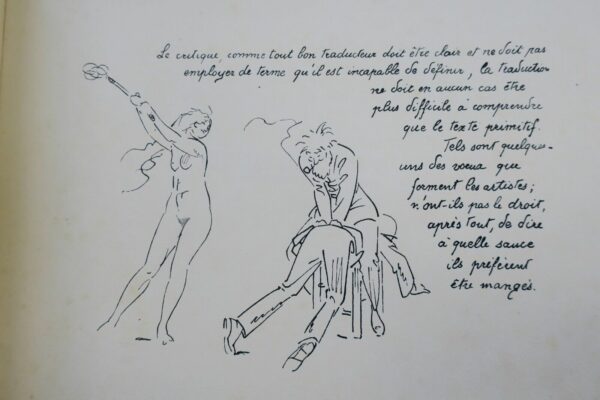 Le critique, comme tout bon traducteur doit être clair et ne doit pas
employer de terme qu'il est incapable de définir, la traduction
ne doit en aucun cas être
plus difficile à comprendre
que le texte primitif.
Tels sont quelques-
uns des vœux que
forment les artistes ;
n'ont-ils pas le droit,
après tout, de dire
à quelle sauce
ils préfèrent
être mangés.